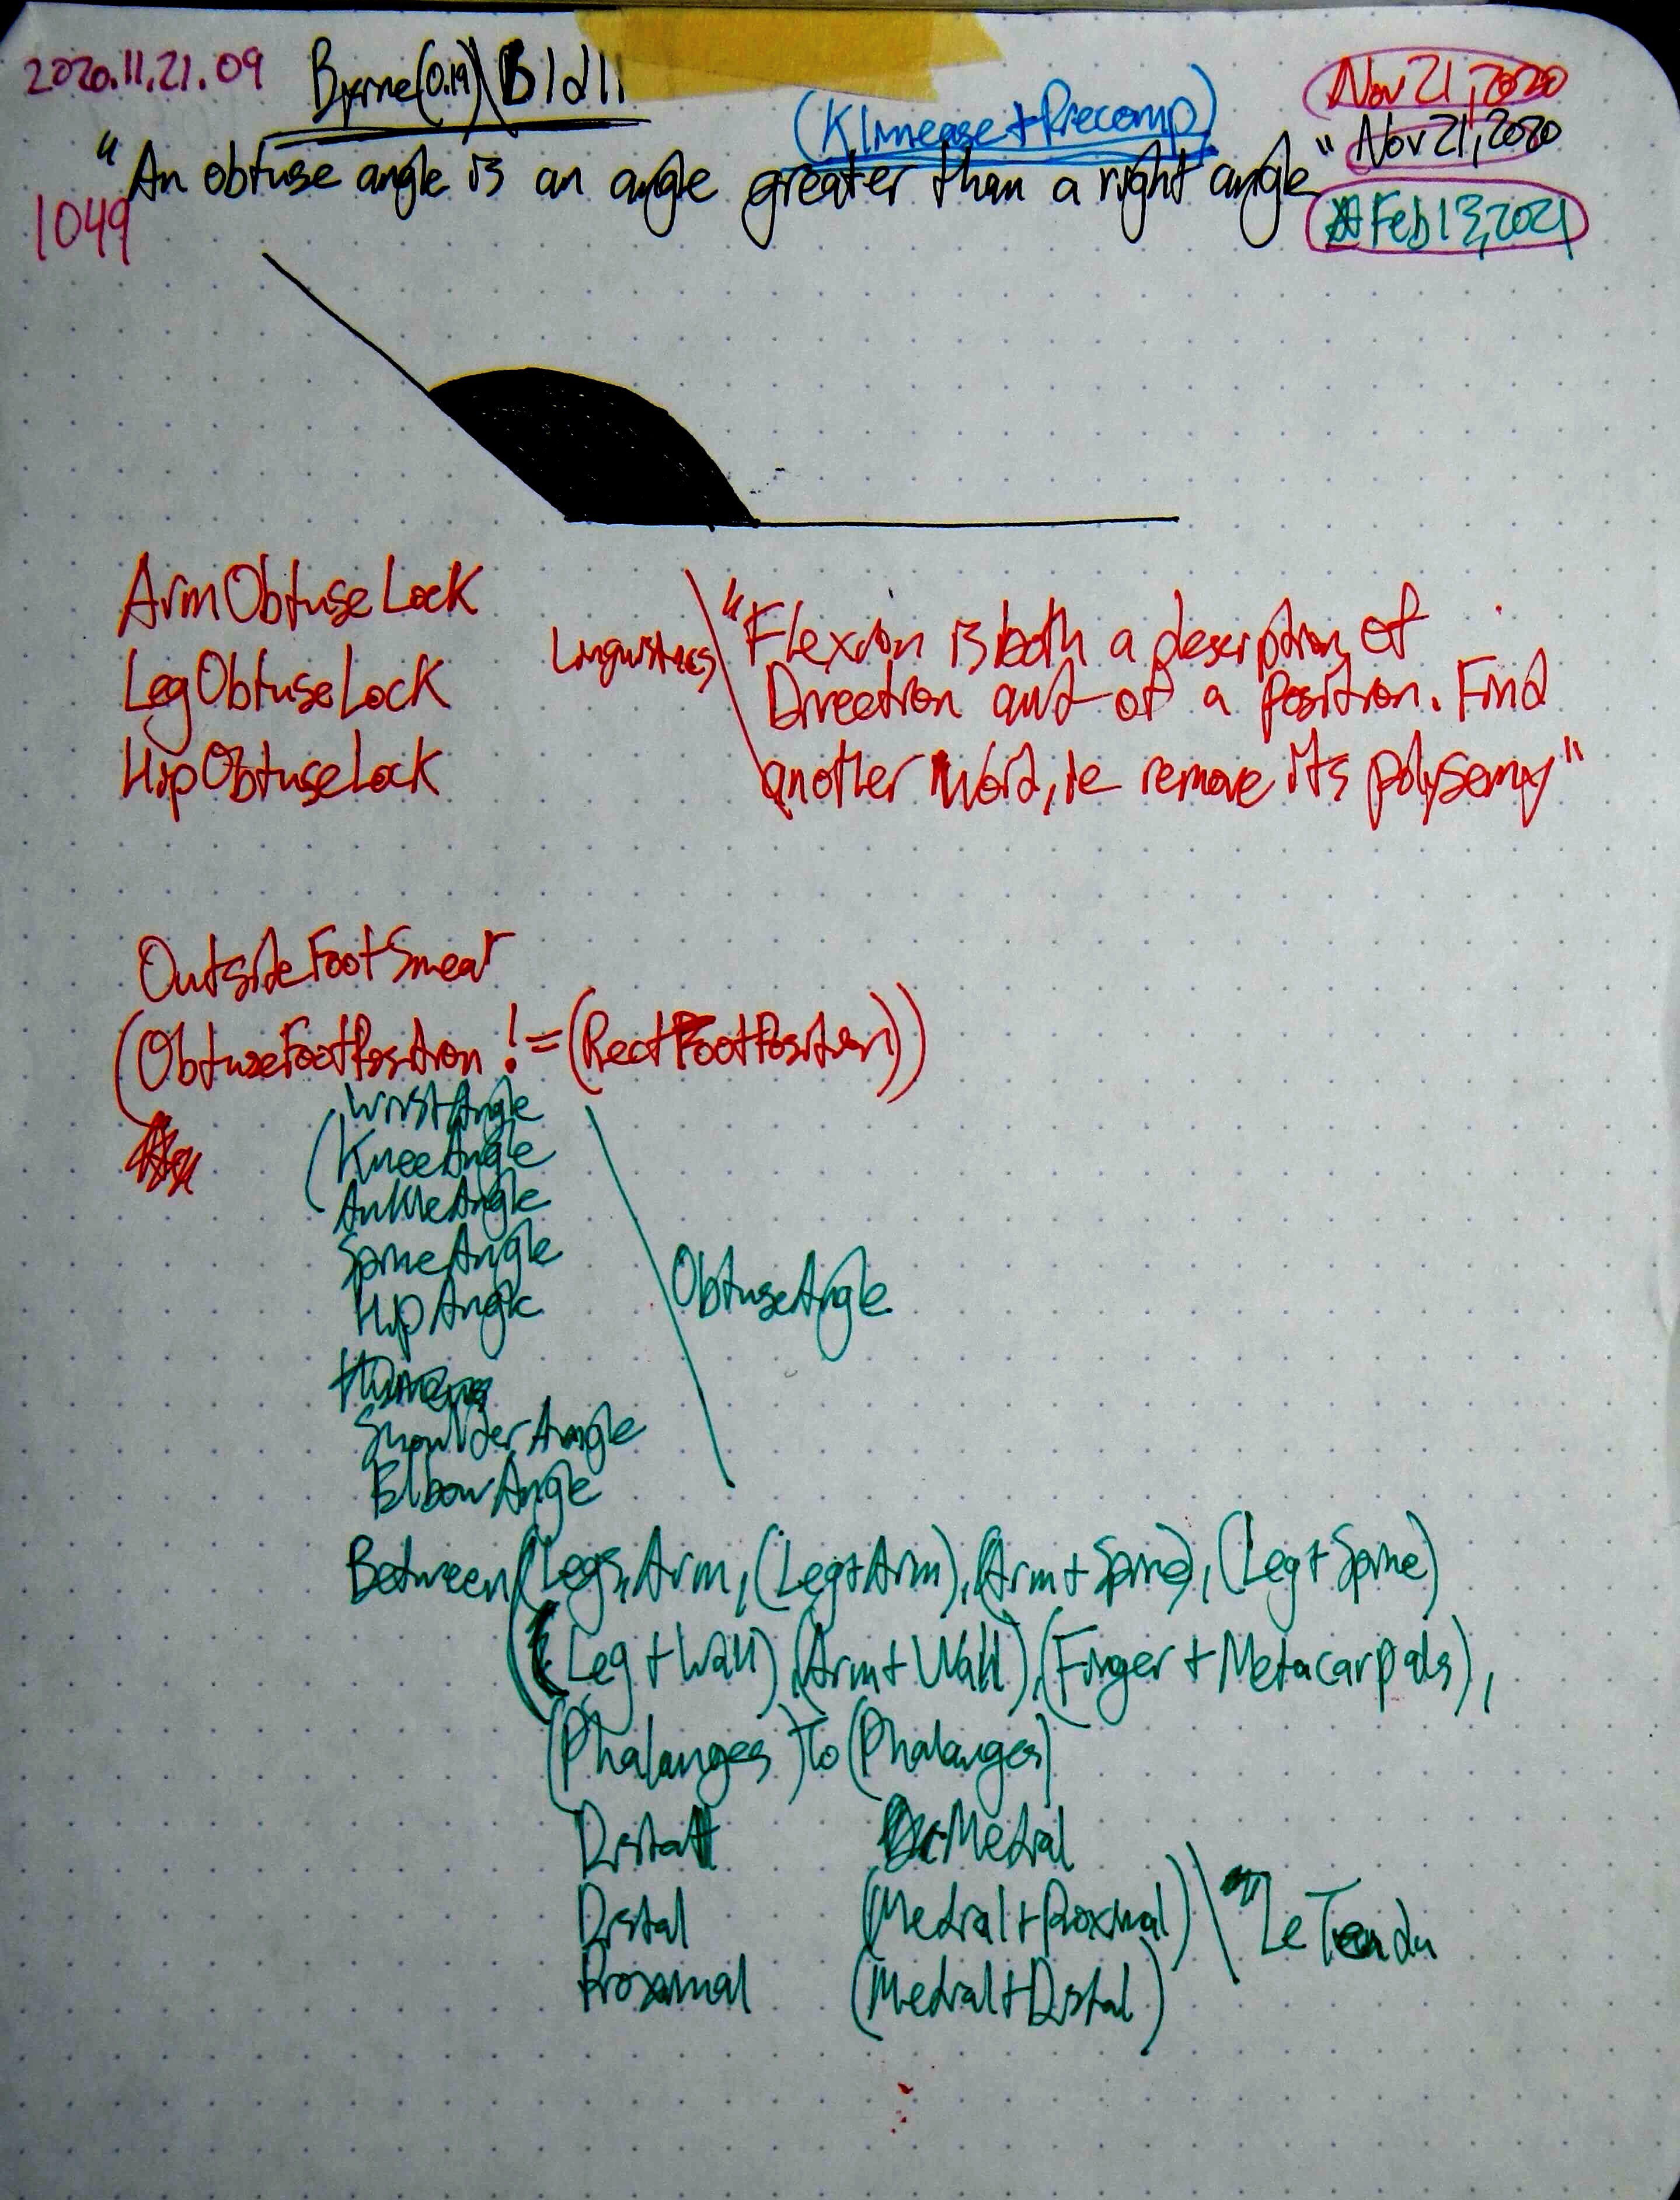 2020.11.21.09
Byrne(0.19)\B1d11
(Klinease+Precomp)
Nov 21, 2020
Nov 21, 2020
Feb 13, 2021
"An obtuse angle is an angle greater than a right angle"
1049
ArmObtuseLock
LegObtuseLock
HipObtuseLock
Linguistics
"Flexion is both a description of
Direction and of a position. Find
another Word, ie remove its polysemy"
OutsideFootSmear
(ObtuseFootPosition != (RectFootPosition))
WristAngle
(KneeAngle
AnkleAngle
SpineAngle
HipAngle
ShoulderAngle
ElbowAngle
ObtuseAngle
Between(Legs, Arm, (Leg+Arm), (Arm+Spine), (Leg+Spine)
(Leg+Wall), (Arm+Wall), (Finger+Metacarpals),
(Phalanges) to (Phalanges)
Distal Medial
Distal (Medial+Proximal)
Proximal (Medial+Distal)
\ LeTendu